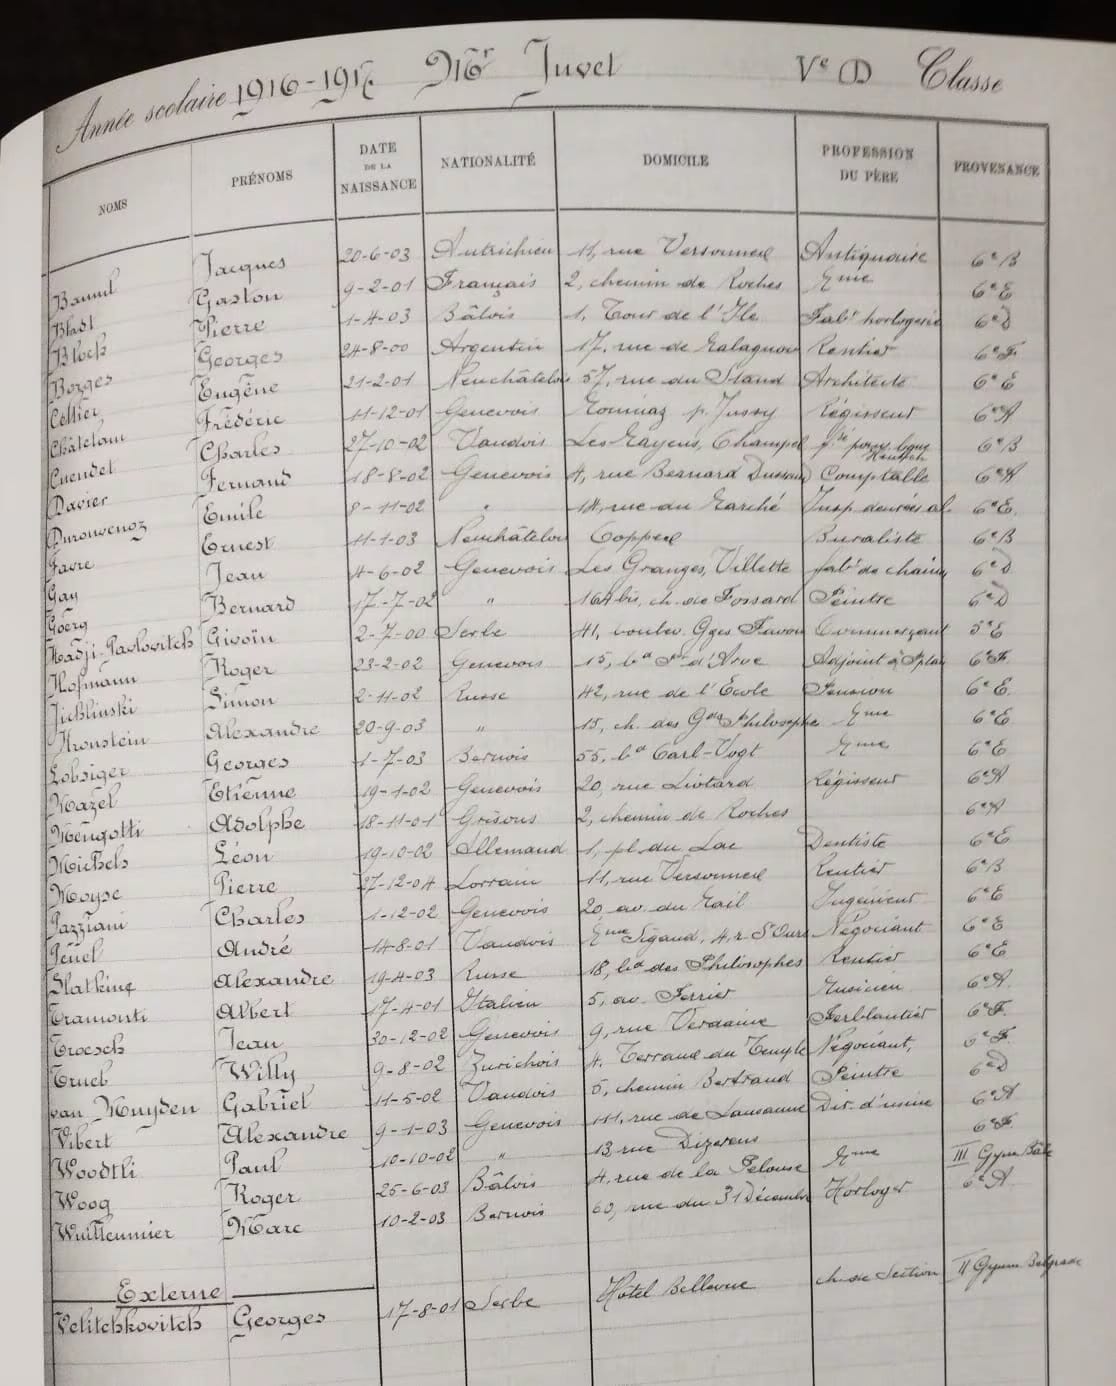 Année scolaire 1916-1917 Mr Juvet Ve (D) Classe
NOMS PRÉNOMS DATE DE LA NAISSANCE NATIONALITÉ DOMICILE PROFESSION DU PÈRE PROVENANCE
Jacques 20-6-03 Autrichien 11, rue Versonnex Antiquaire 6e B
Blast Gaston 9-2-01 Français 2, chemin de Roches Mme 6e E
Bloch Pierre 1-4-03 Bâlois 1, Tour de l'Ile Fabt horlogerie 6e D
Borges Georges 24-8-00 Argentin 17, rue de Malagnou Rentier 6e F
Cellier Eugène 21-2-01 Neuchâtelois 57, rue du Stand Architecte 6e E
Châtelain Frédéric 11-12-01 Genevois Monniaz p. Jussy Régisseur 6e A
Cuendet Charles 27-10-02 Vaudois Les Mayens, Champel 6e B
Davier Fernand 18-8-02 Genevois 4, rue Bernard Dussaud Comptable 6e A
Durouvenoz Emile 8-11-02 " 14, rue du Marché Insp. denrées al. 6e E
Favre Ernest 11-1-03 Neuchâtelois Coppet Buraliste 6e B
Gay Jean 4-6-02 Genevois Les Granges, Villette fabt de chaînes 6e D
Goerg Bernard 17-7-02 " 164 bis, ch. de Fossard Peintre 6e D
Hadji-Pavlovitch Givoïn 2-7-00 Serbe 41, boulev. Gges Favon Commerçant 5e E
Hofmann Roger 23-2-02 Genevois 15, bd Pt d'Arve Adjoint 6e F
Jichlinski Simon 2-11-02 Russe 42, rue de l'Ecole Pension 6e E
Kronstein Alexandre 20-9-03 " 15, ch. des Gds Philosophes Mme 6e E
Lobsiger Georges 1-7-03 Bernois 55, bd Carl-Vogt Mme 6e E
Mazel Etienne 19-1-02 Genevois 20, rue Liotard Régisseur 6e A
Mengotti Adolphe 18-11-01 Grisons 2, chemin de Roches 6e A
Michels Léon 19-10-02 Allemand 1, pl. du Lac Dentiste 6e E
Moyse Pierre 27-12-04 Lorrain 11, rue Versonnex Rentier 6e B
Pazziani Charles 1-12-02 Genevois 20 av. du Mail Ingénieur 6e E
Péuel André 14-8-01 Vaudois Mme Sigaud, 4. r. St Ours Négociant 6e E
Slatkine Alexandre 19-4-03 Russe 18, bd des Philosophes Rentier 6e E
Tramonti Albert 17-4-01 Italien 5, av. Ferrier Musicien 6e A
Troesch Jean 30-12-02 Genevois 9, rue Verdaine Ferblantier 6e F
Trueb Willy 9-8-02 Zurichois 4. Terraux du Temple Négociant, 6e F
van Muyden Gabriel 11-5-02 Vaudois 5, chemin Bertrand Peintre 6e D
Vibert Alexandre 9-1-03 Genevois 111, rue de Lausanne Dir. d'usine 6e A
Woodtli Paul 10-10-02 " 13 rue Dizerens 6e F
Woog Roger 25-6-03 Bâlois 4, rue de la Pelouse Mme III Gym Bâle
Wuilleumier Marc 10-2-03 Bernois 60, rue du 31 Décembre Horloger 6e A
Externe
Velitchkovitch Georges 17-8-01 Serbe Hôtel Bellevue ch. de Section II Gymn Belgrade